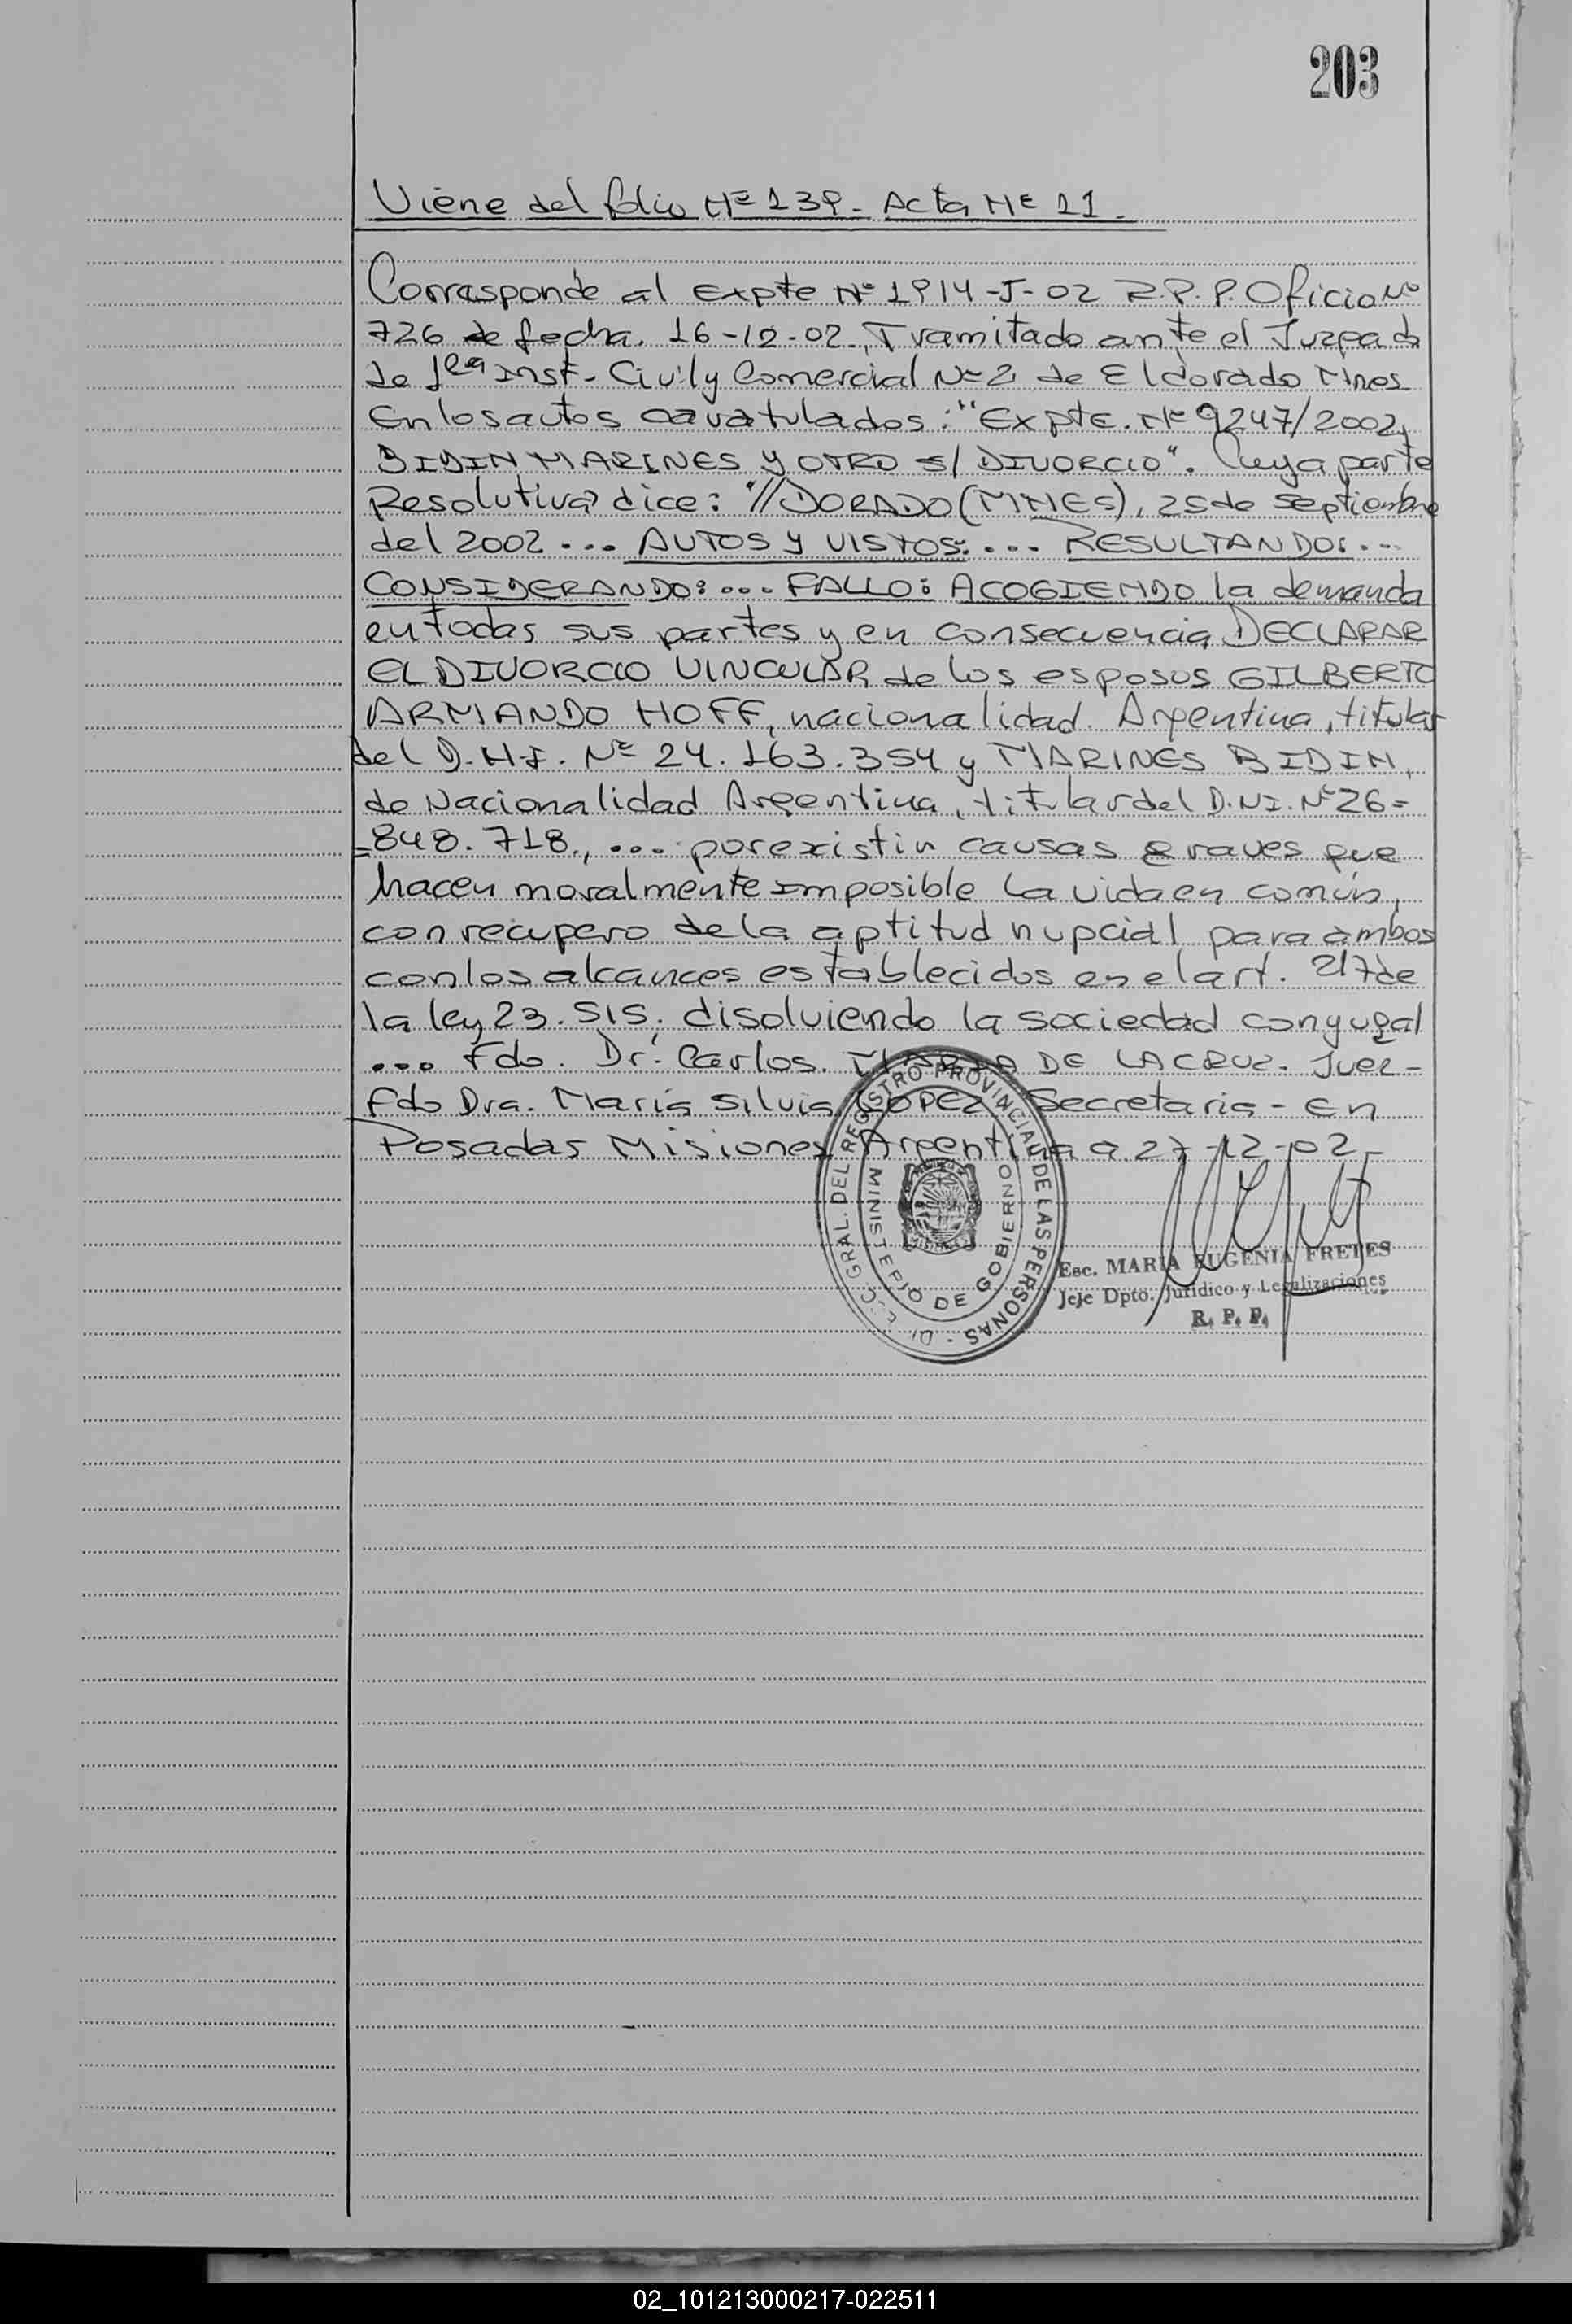 203
Viene del folio Nº 139 - Acta Nº 11.
Corresponde al Expte Nº 1914-J-02 R.P.P. Oficio Nº
726 de fecha. 16-12-02., Tramitado ante el Juzgado
de 1era Inst. Civil y Comercial Nº 2 de Eldorado Mnes.
En los autos caratulados: "Expte. Nº 9247/2002,
BIDIN MARINES y OTRO S/ DIVORCIO". Cuya parte
Resolutiva dice: "//DORADO (MNES), 25 de Septiembre
del 2002 ... AUTOS Y VISTOS: ... RESULTANDO: ...
CONSIDERANDO: ... FALLO: ACOGIENDO la demanda
en todas sus partes y en consecuencia, DECLARAR
EL DIVORCIO VINCULAR de los esposos GILBERTO
ARMANDO HOFF, nacionalidad Argentina, titular
del D.N.I. Nº 24.163.354 y MARINES BIDIN,
de Nacionalidad Argentina, titular del D.NI. Nº 26=
=848.718., ... por existir causas graves que
hacen moralmente imposible la vida en común,
con recupero de la aptitud nupcial para ambos
con los alcances establecidos en el art. 217 de
la ley 23.515. disolviendo la sociedad conyugal
... Fdo. Dr. Carlos. MARIA DE LA CRUZ. Juez -
Fdo Dra. María Silvia LOPEZ Secretaria - En
Posadas Misiones Argentina a 27-12-02-
GRAL. DEL REGISTRO PROVINCIAL DE LAS PERSONAS
MINISTERIO DE GOBIERNO
Esc. MARIA EUGENIA FRETES
Jefe Dpto. Jurídico y Legalizaciones
R. P. P.
02_101213000217-022511